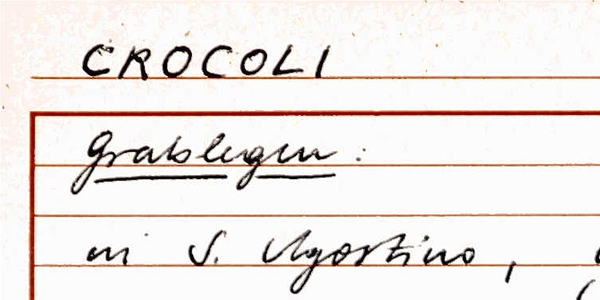 CROCOLI
Grablegen :
in S. Agostino,